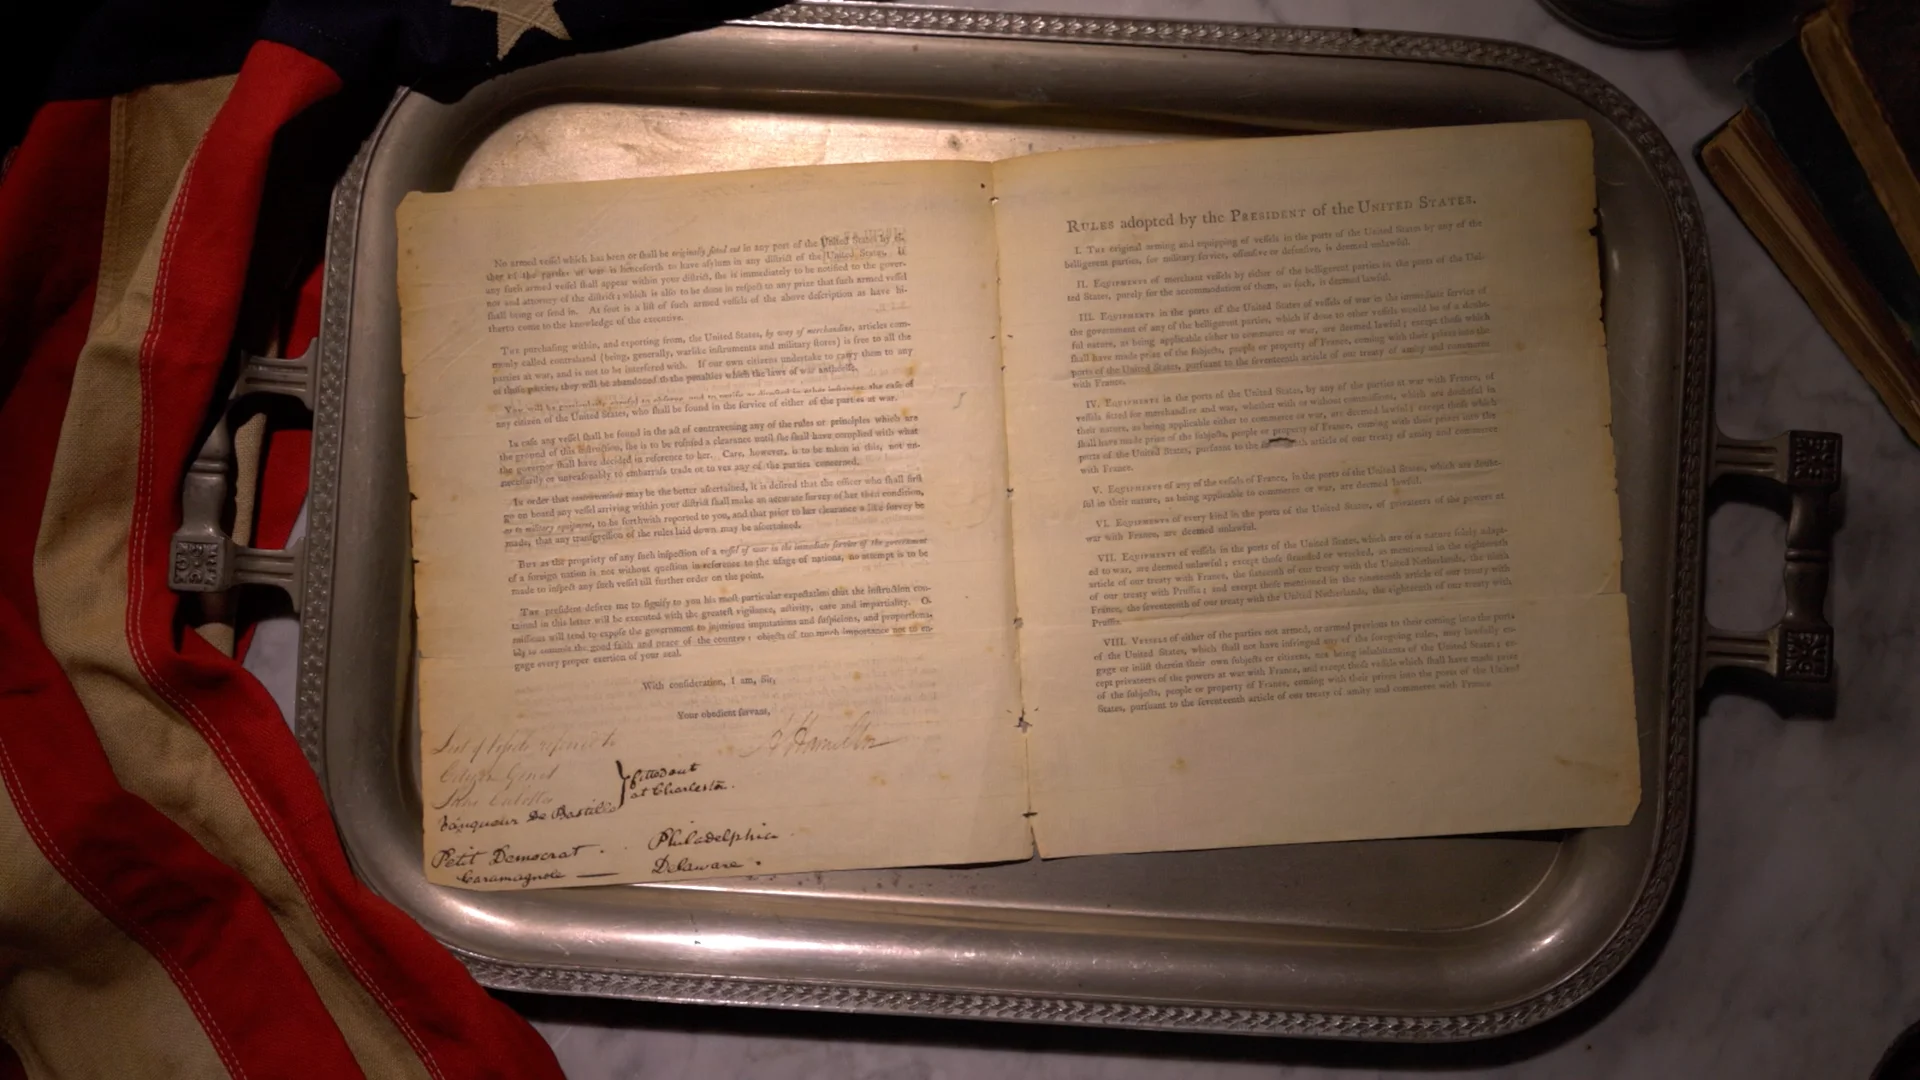 No armed veſſel which has been or ſhall be originally fitted out in any port of the United States by ei-
ther of the parties at war is henceforth to have aſylum in any diſtrict of the United States. If
any ſuch armed veſſel ſhall appear within your diſtrict, ſhe is immediately to be notified to the gover-
nor and attorney of the diſtrict; which is alſo to be done in reſpect to any prize that ſuch armed veſſel
ſhall bring or ſend in. At foot is a liſt of ſuch armed veſſels of the above deſcription as have hi-
therto come to the knowledge of the executive.
The purchaſing within, and exporting from, the United States, by way of merchandize, articles com-
monly called contraband (being, generally, warlike inſtruments and military ſtores) is free to all the
parties at war, and is not to be interfered with. If our own citizens undertake to carry them to any
of thoſe parties, they will be abandoned to the penalties which the laws of war authoriſe.
You will be particularly careful to obſerve, and to notify as directed in other inſtances, the caſe of
any citizen of the United States, who ſhall be found in the ſervice of either of the parties at war.
In caſe any veſſel ſhall be found in the act of contravening any of the rules or principles which are
the ground of this inſtruction, ſhe is to be refuſed a clearance until ſhe ſhall have complied with what
the governor ſhall have decided in reference to her. Care, however, is to be taken in this, not un-
neceſſarily or unreaſonably to embarraſs trade or to vex any of the parties concerned.
In order that contraventions may be the better aſcertained, it is deſired that the officer who ſhall firſt
go on board any veſſel arriving within your diſtrict ſhall make an accurate ſurvey of her then condition,
as to military equipment, to be forthwith reported to you, and that prior to her clearance a like ſurvey be
made, that any tranſgreſſion of the rules laid down may be aſcertained.
But as the propriety of any ſuch inſpection of a veſſel of war in the immediate ſervice of the government
of a foreign nation is not without queſtion in reference to the uſage of nations, no attempt is to be
made to inſpect any ſuch veſſel till further order on the point.
The preſident deſires me to ſignify to you his moſt particular expectation that the inſtruction con-
tained in this letter will be executed with the greateſt vigilance, activity, care and impartiality. O-
miſſions will tend to expoſe the government to injurious imputations and ſuſpicions, and proportiona-
bly to commit the good faith and peace of the country: objects of too much importance not to en-
gage every proper exertion of your zeal.
With conſideration, I am, Sir,
Your obedient ſervant,
A Hamilton
List of Vessels referred to
Citizen Genet
Sans Culottes
Vainqueur De Bastille
} fitted out
at Charleston.
Petit Democrat . . Philadelphia
Caramagnole — Delaware .
RULES adopted by the PRESIDENT of the UNITED STATES.
I. THE original arming and equipping of veſſels in the ports of the United States by any of the
belligerent parties, for military ſervice, offenſive or defenſive, is deemed unlawful.
II. EQUIPMENTS of merchant veſſels by either of the belligerent parties in the ports of the Uni-
ted States, purely for the accommodation of them, as ſuch, is deemed lawful.
III. EQUIPMENTS in the ports of the United States of veſſels of war in the immediate ſervice of
the government of any of the belligerent parties, which if done to other veſſels would be of a doubt-
ful nature, as being applicable either to commerce or war, are deemed lawful; except thoſe which
ſhall have made prize of the ſubjects, people or property of France, coming with their prizes into the
ports of the United States, purſuant to the ſeventeenth article of our treaty of amity and commerce
with France.
IV. EQUIPMENTS in the ports of the United States, by any of the parties at war with France, of
veſſels fitted for merchandize and war, whether with or without commiſſions, which are doubtful in
their nature, as being applicable either to commerce or war, are deemed lawful; except thoſe which
ſhall have made prize of the ſubjects, people or property of France, coming with their prizes into the
ports of the United States, purſuant to the article of our treaty of amity and commerce
with France.
V. EQUIPMENTS of any of the veſſels of France, in the ports of the United States, which are doubt-
ful in their nature, as being applicable to commerce or war, are deemed lawful.
VI. EQUIPMENTS of every kind in the ports of the United States, of privateers of the powers at
war with France, are deemed unlawful.
VII. EQUIPMENTS of veſſels in the ports of the United States, which are of a nature ſolely adapt-
ed to war, are deemed unlawful; except thoſe ſtranded or wrecked, as mentioned in the eighteenth
article of our treaty with France, the ſixteenth of our treaty with the United Netherlands, the ninth
of our treaty with Pruſſia; and except thoſe mentioned in the nineteenth article of our treaty with
France, the ſeventeenth of our treaty with the United Netherlands, the eighteenth of our treaty with
Pruſſia.
VIII. VESSELS of either of the parties not armed, or armed previous to their coming into the ports
of the United States, which ſhall not have infringed any of the foregoing rules, may lawfully en-
gage or inliſt therein their own ſubjects or citizens, not being inhabitants of the United States; ex-
cept privateers of the powers at war with France, and except thoſe veſſels which ſhall have made prize
of the ſubjects, people or property of France, coming with their prizes into the ports of the United
States, purſuant to the ſeventeenth article of our treaty of amity and commerce with France.